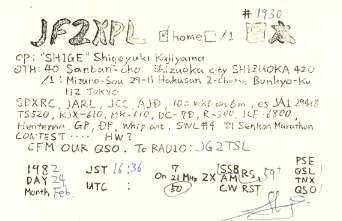 # 1930
JF2XPL home /1 日本
OP: "SHIGE" Shigeyuki Kajiyama
QTH: 40 Sanban-cho Shizuoka city SHIZUOKA 420
/1: Mizuno-Sou 29-11 Hakusan 2-chome, Bunkyo-Ku
112 TOKYO
SDXRC, JARL, JCC, AJD, 10W whip on 6m, es JA1
TS520, RJX-610, MX-610, DC-7D, R-300, ICF-6800,
Hentenna, GP, DP, Whip ant, SWL#4 '81 Senkan Marathon
CONTEST .... HW?
CFM OUR QSO. To RADIO: JG2TSL
1982 JST 16:36 7 SSB RS 59 PSE
DAY 24 On 21 MHz 2X AM QSL
Month Feb. UTC: 50 CW RST TNX
QSO